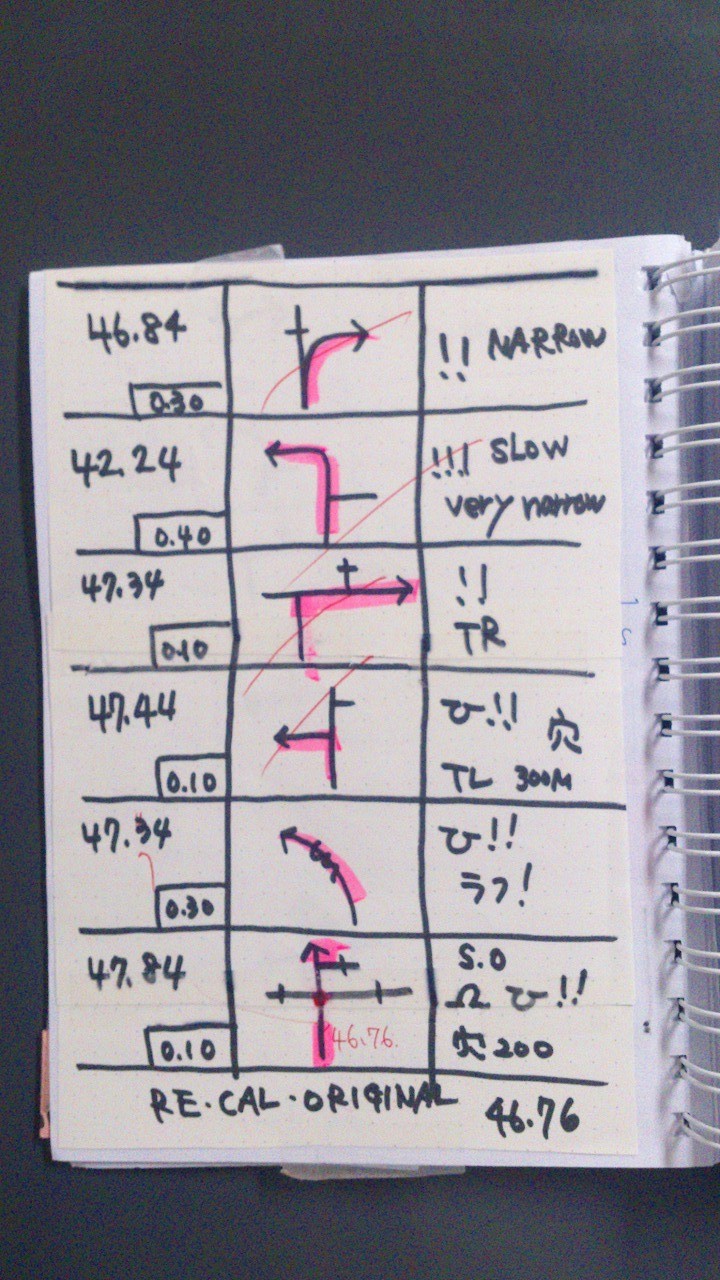 46.84
0.30
!! NARROW
42.24
0.40
!!! SLOW
very narrow
47.34
0.10
!!
TR
47.44
0.10
ひ!! 穴
TL 300M
47.34
0.30
ひ!!
ラフ!
47.84
0.10
46.76.
S.O
Ω ひ!!
穴 200
RE.CAL.ORIGINAL 46.76